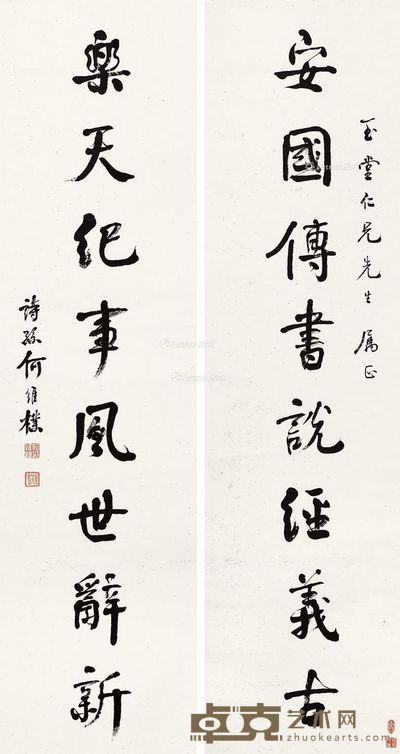 玉堂仁兄先生属正
安國傳書說經義古
樂天紀事風世辭新
詩孫何維樸
卓克艺术网
zhuokearts.com